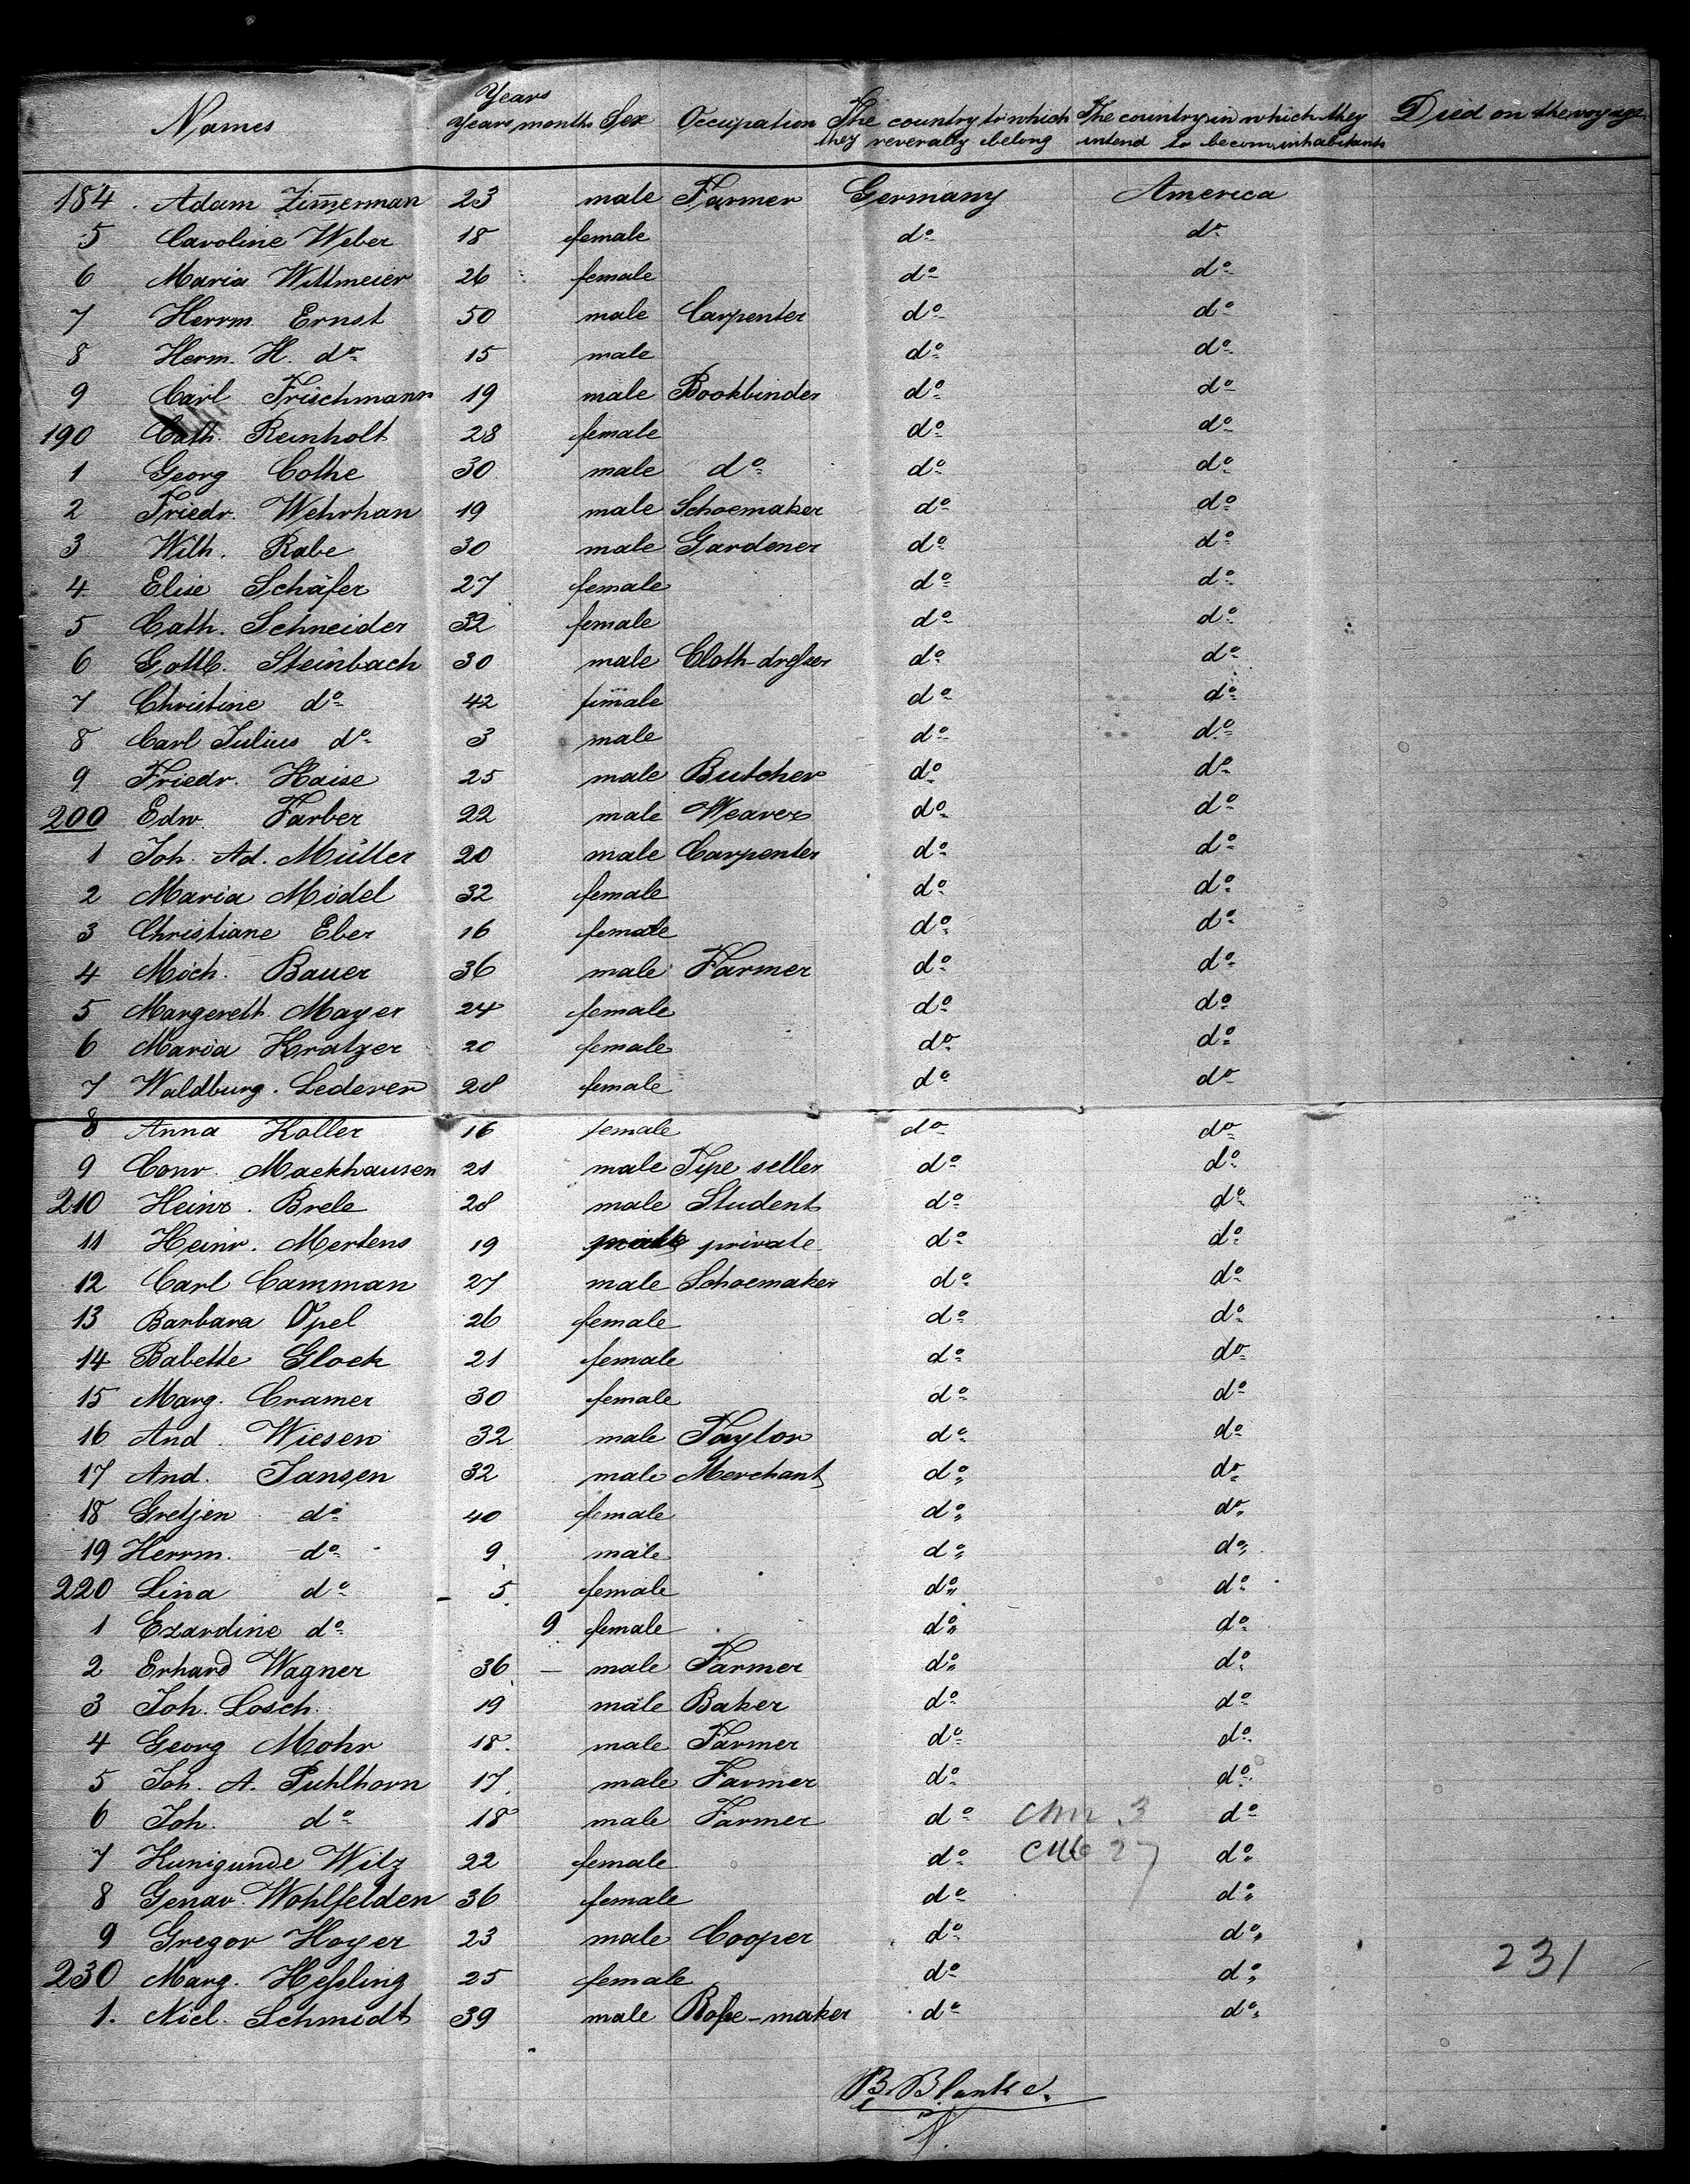 Names Years Years months Sex Occupation The country to which they severally belong The country in which they intend to becom inhabitants Died on the voyage
184 Adam Zim̅erman 23 male Farmer Germany America
5 Caroline Weber 18 female do do
6 Maria Wittmeier 26 female do do
7 Herrm. Ernst 50 male Carpenter do do
8 Herm. H. do 15 male do do
9 Carl Frischmann 19 male Bookbinder do do
190 Cath. Reinholt 28 female do do
1 Georg Cothe 30 male do do do
2 Friedr. Wehrhan 19 male Schoemaker do do
3 Wilh. Rabe 30 male Gardener do do
4 Elise Schäfer 27 female do do
5 Cath. Schneider 32 female do do
6 Gottlb. Steinbach 30 male Cloth-dresser do do
7 Christine do 42 female do do
8 Carl Julius do 3 male do do
9 Friedr. Haise 25 male Butcher do do
200 Edw. Farber 22 male Weaver do do
1 Joh. Ad. Müller 20 male Carpenter do do
2 Maria Model 32 female do do
3 Christiane Eber 16 female do do
4 Mich. Bauer 36 male Farmer do do
5 Margereth Mayer 24 female do do
6 Maria Kratzer 20 female do do
7 Waldburg. Lederer 28 female do do
8 Anna Koller 16 female do do
9 Conr. Mackhausen 21 male seller do do
210 Heinr. Brele 28 male Student do do
11 Heinr. Mertens 19 male private do do
12 Carl Camman 27 male Schoemaker do do
13 Barbara Opel 26 female do do
14 Babette Glock 21 female do do
15 Marg. Cramer 30 female do do
16 And. Wiesen 32 male Taylor do do
17 And. Jansen 32 male Merchant do do
18 Gretjen do 40 female do do
19 Herrm. do 9 male do do
220 Lina do 5 female do do
1 Ezardine do 9 female do do
2 Erhard Wagner 36 — male Farmer do do
3 Joh. Losch 19 male Baker do do
4 Georg Mohr 18 male Farmer do do
5 Joh. A. Puhlhorn 17 male Farmer do do
6 Joh. do 18 male Farmer do 3 do
7 Kunigunde Wilz 22 female do 27 do
8 Wohlfelden 36 female do do
9 Gregor Hoyer 23 male Cooper do do
230 Marg. Hessling 25 female do do 231
1. Nicl. Schmidt 39 male Rope-maker do do
B. Blanke.